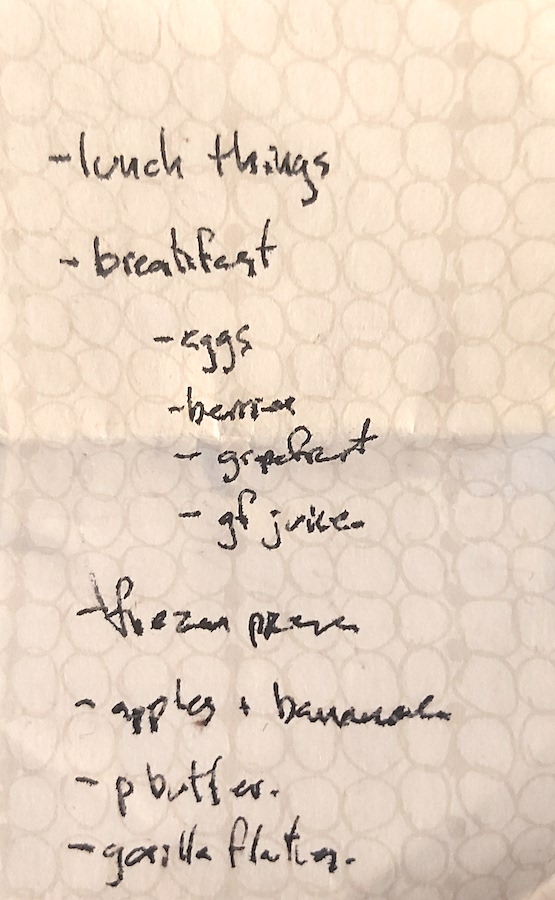 - lunch things
- breakfast
- eggs
- berries
- grapefruit
- gf juice
- frozen
- apples + bananas
- p butter.
- gorilla